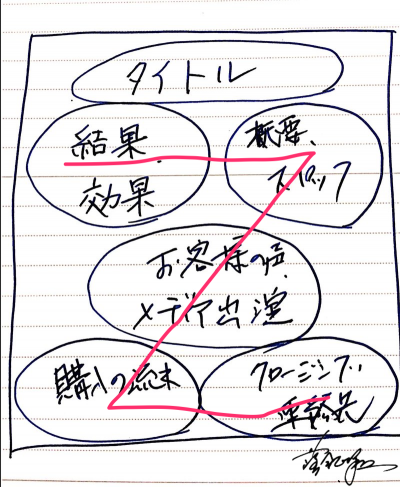 タイトル
結果
効果
概要、
スペック
お客様の声
メディア出演
購入の流れ
クロージング